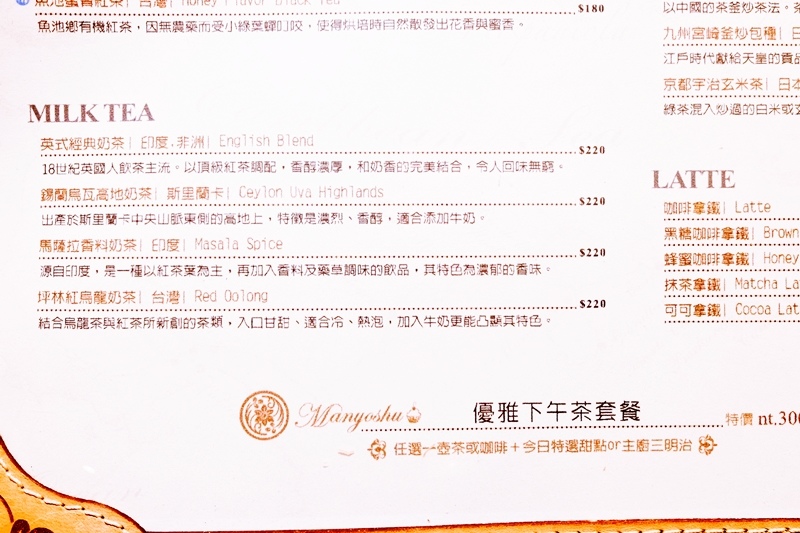 魚池蜜香紅茶| 台灣| Honey Flavor Black Tea $180
魚池鄉有機紅茶，因無農藥而受小綠葉蟬叮咬，使得烘培時自然散發出花香與蜜香。
MILK TEA
英式經典奶茶| 印度.非洲| English Blend $220
18世紀英國人飲茶主流。以頂級紅茶調配，香醇濃厚，和奶香的完美結合，令人回味無窮。
錫蘭烏瓦高地奶茶| 斯里蘭卡| Ceylon Uva Highlands $220
出產於斯里蘭卡中央山脈東側的高地上，特徵是濃烈、香醇，適合添加牛奶。
馬薩拉香料奶茶| 印度| Masala Spice $220
源自印度，是一種以紅茶葉為主，再加入香料及藥草調味的飲品，其特色為濃郁的香味。
坪林紅烏龍奶茶| 台灣| Red Oolong $220
結合烏龍茶與紅茶所新創的茶類，入口甘甜、適合冷、熱泡，加入牛奶更能凸顯其特色。
以中國的茶釜炒茶法。
九州宮崎釜炒包種|
江戶時代獻給天皇的貢品
京都宇治玄米茶| 日本
綠茶混入炒過的白米或玄
LATTE
咖啡拿鐵| Latte
黑糖咖啡拿鐵| Brown
蜂蜜咖啡拿鐵| Honey
抹茶拿鐵| Matcha La
可可拿鐵| Cocoa Lat
Manyoshu 優雅下午茶套餐 特價 nt.300
任選一壺茶或咖啡＋今日特選甜點or主廚三明治